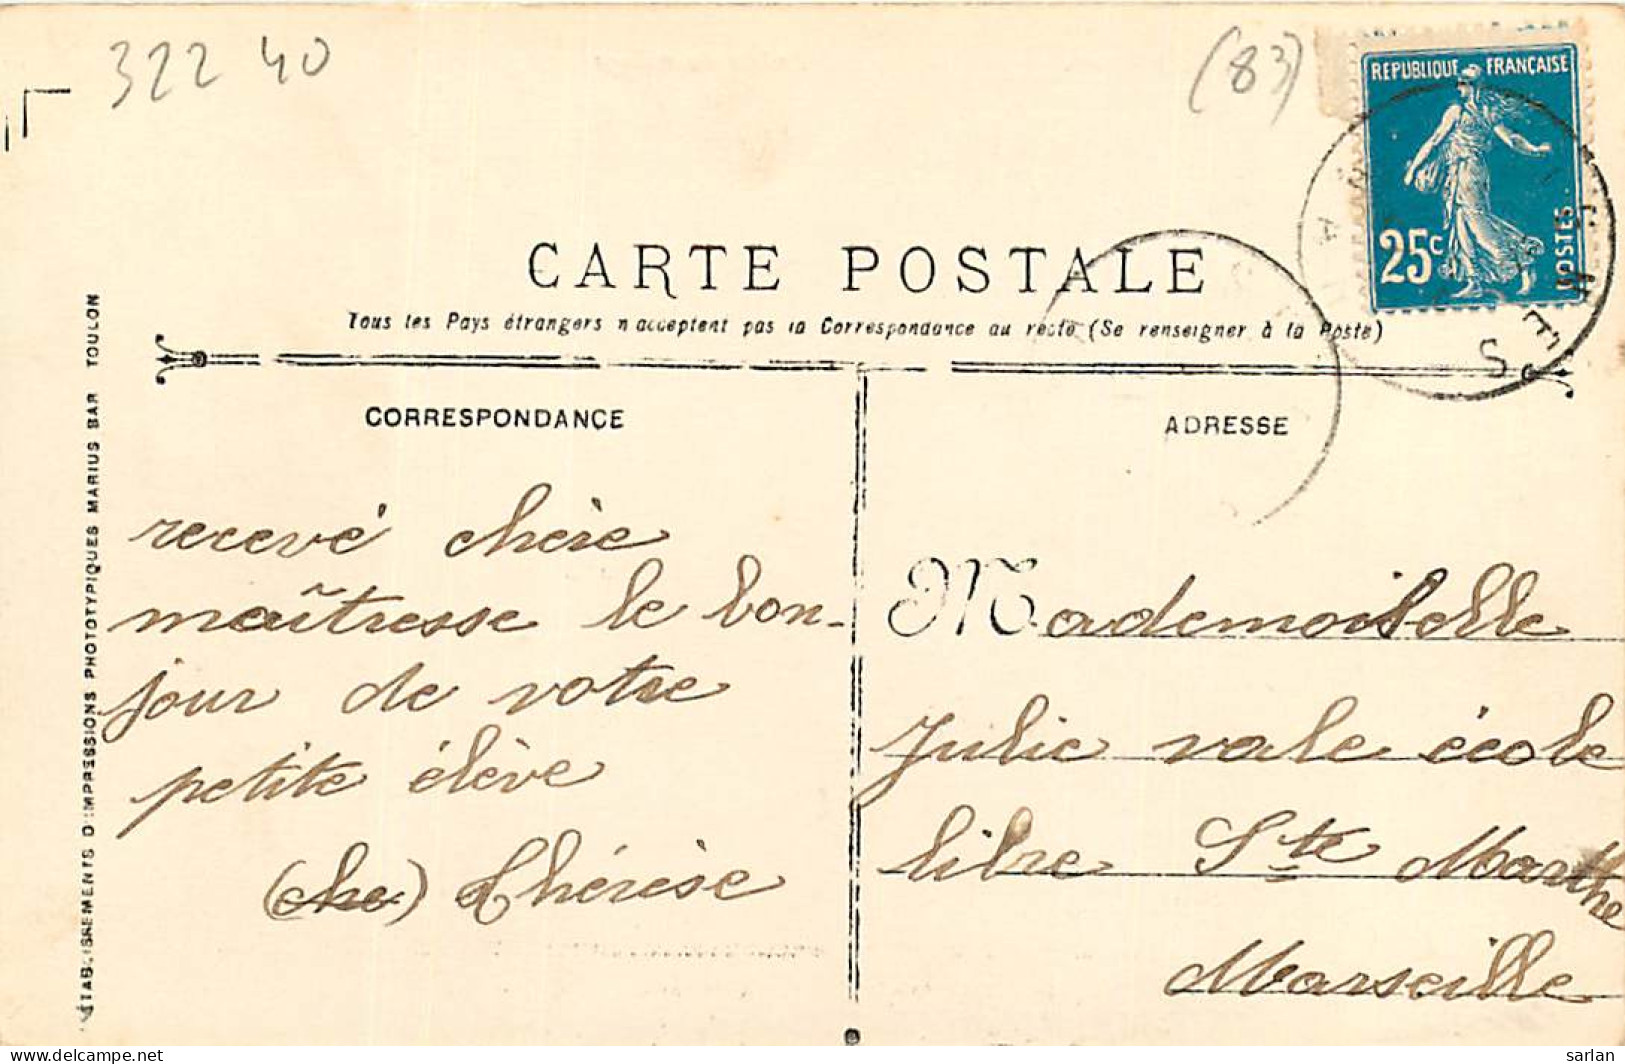 322 40
(83)
REPUBLIQUE FRANÇAISE
25c
POSTES
CARTE POSTALE
Tous les Pays étrangers n'acceptent pas la Correspondance au recto (Se renseigner à la Poste)
CORRESPONDANCE
recevé chère
maîtresse le bon-
jour de votre
petite élève
(che) Thérèse
ADRESSE
Mademoiselle
Julie vale école
libre Ste Marthe
Marseille
ÉTABLISSEMENTS D'IMPRESSIONS PHOTOTYPIQUES MARIUS BAR TOULON
delcampe.net
sarlan